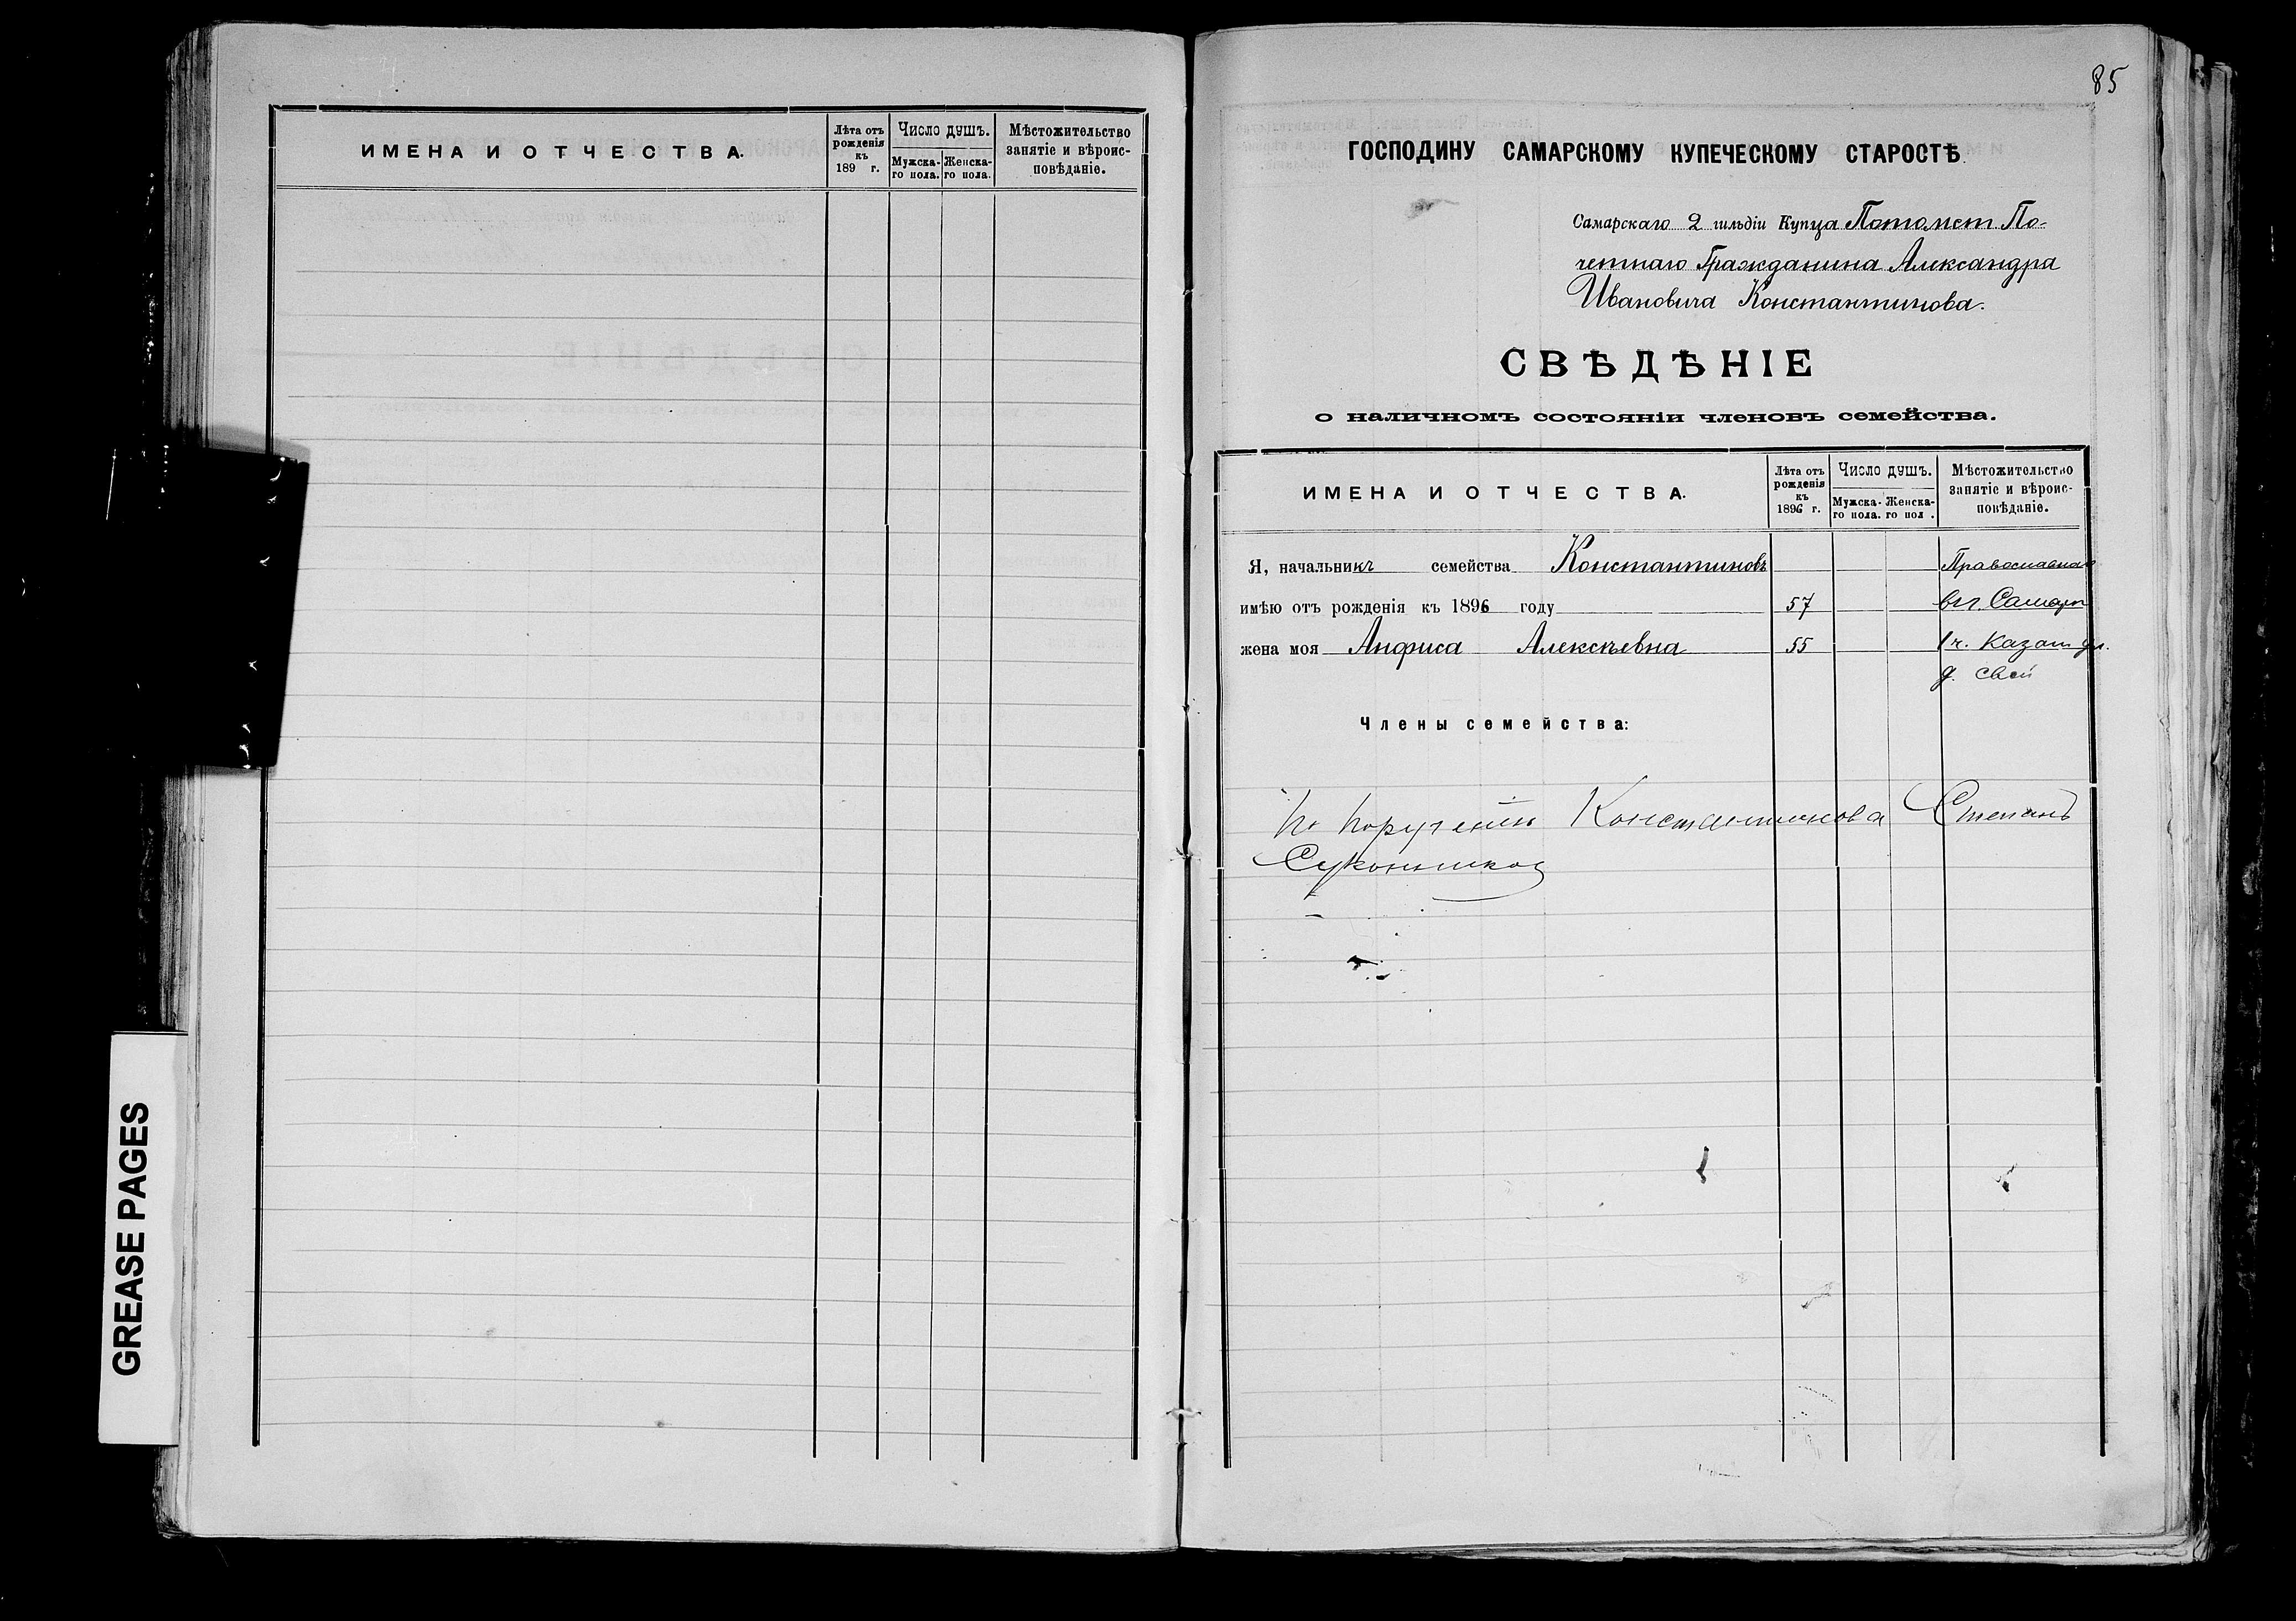 ИМЕНА И ОТЧЕСТВА.
Лѣта отъ рожденія къ 189 г.
Число душъ.
Мужска-го пола.
Женска-го пола.
Мѣстожительство занятіе и вѣроис-повѣданіе.
85
ГОСПОДИНУ САМАРСКОМУ КУПЕЧЕСКОМУ СТАРОСТѢ.
Самарскаго 2 гильдіи Купца Потомст. По-
четнаго Гражданина Александра
Ивановича Константинова.
СВѢДѢНІЕ
о наличномъ состояніи членовъ семейства.
ИМЕНА И ОТЧЕСТВА.
Лѣта отъ рожденія къ 1896 г.
Число душъ.
Мужска-го пола.
Женска-го пол .
Мѣстожительство занятіе и вѣроис-повѣданіе.
Я, начальникъ семейства Константиновъ Православнаго
имѣю отъ рожденія къ 1896 году 57 въ г. Самарѣ
жена моя Анфиса Алексѣевна 55 1 ч. Казан ул.
д. свой
Члены семейства:
По порученію Константинова Степанъ
Суконников
GREASE PAGES